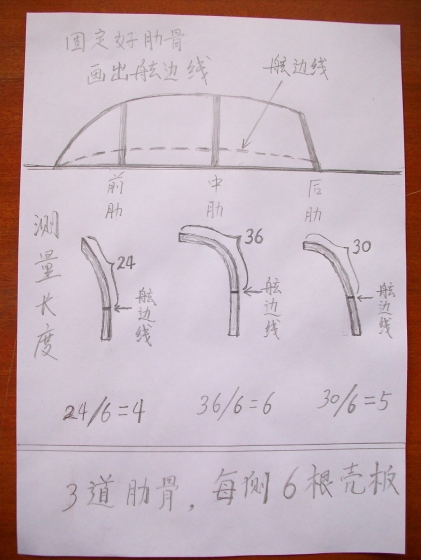 固定好肋骨
画出舷边线
舷边线
前肋
中肋
后肋
测量长度
24
舷边线
36
舷边线
30
舷边线
24/6=4
36/6=6
30/6=5
3道肋骨，每侧6根壳板